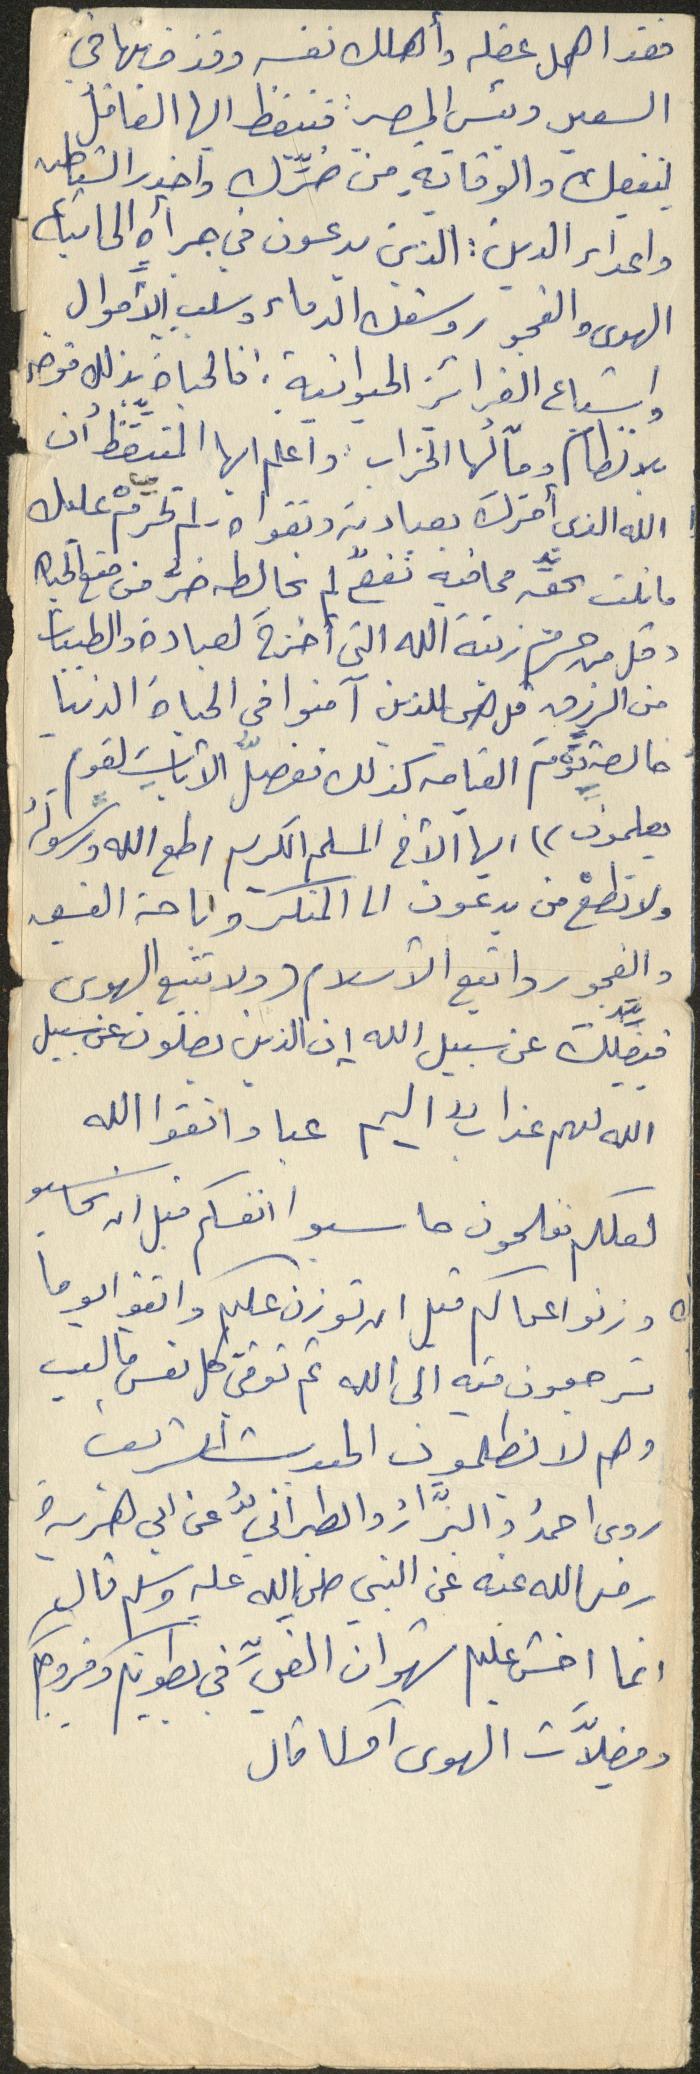 فقد اهمل عقله وأهلك نفسه وقذف بها في
السعير وبئس المصير: فتيقظ ايها الغافل
لنفعك والوقاية من ضرك واحذر الشياطين
واعداء الدين: الذين يدعون في جرأةٍ الى اتباع
الهوى والفجور وسفك الدماء وسلب الأموال
وإشباع الغرائز الحيوانية: فالحياة بذلك فوضى
بلا نظام ومآلُها الخراب: واعلم ايها المتيقّظ أن
الله الذى أمرك بعبادته وتقواه لم يحرمْ عليك
ما نلت بحقه مما فيه نفعٌ لم يخالطه ضرٌ من متع الحياه
وقل من حرم زينة الله التى أخرج لعباده والطيبات
من الرزق قل هى للذين آمنوا في الحياة الدنيا
خالصة يومَ القيامة كذلك نفصلُ الآيات لقوم
يعلمون)) ايها الأخ المسلم الكريم اطع الله ورسولهُ
ولا تطعْ من يدعون الى المنكر واباحة الفسق
والفجور واتبع الأسلام (ولا تتبع الهوى
فيضِلّك عن سبيل الله إن الذين يضلون عن سبيل
الله لهم عذاب اليم عباد اتقوا الله
لعلكم تفلحون حاسبوا انفسكم قبل ان تحاسبو
وزنوا اعمالكم قبل ان توزن عليكم واتقوا يوما
ترجعون فيه الى الله ثم توفى كل نفس ما كسبت
وهم لا يظلمون الحديث الشريف
روى احمدُ والبزَّارُ والطبرانيُ عن ابي هريرة
رضى الله عنه عن النبي صلى الله عليه وسلم قال
انما اخشى عليكم شهوات الغيِّ في بطونكم وفروجكم
ومضِلاَّت الهوى او كما قال